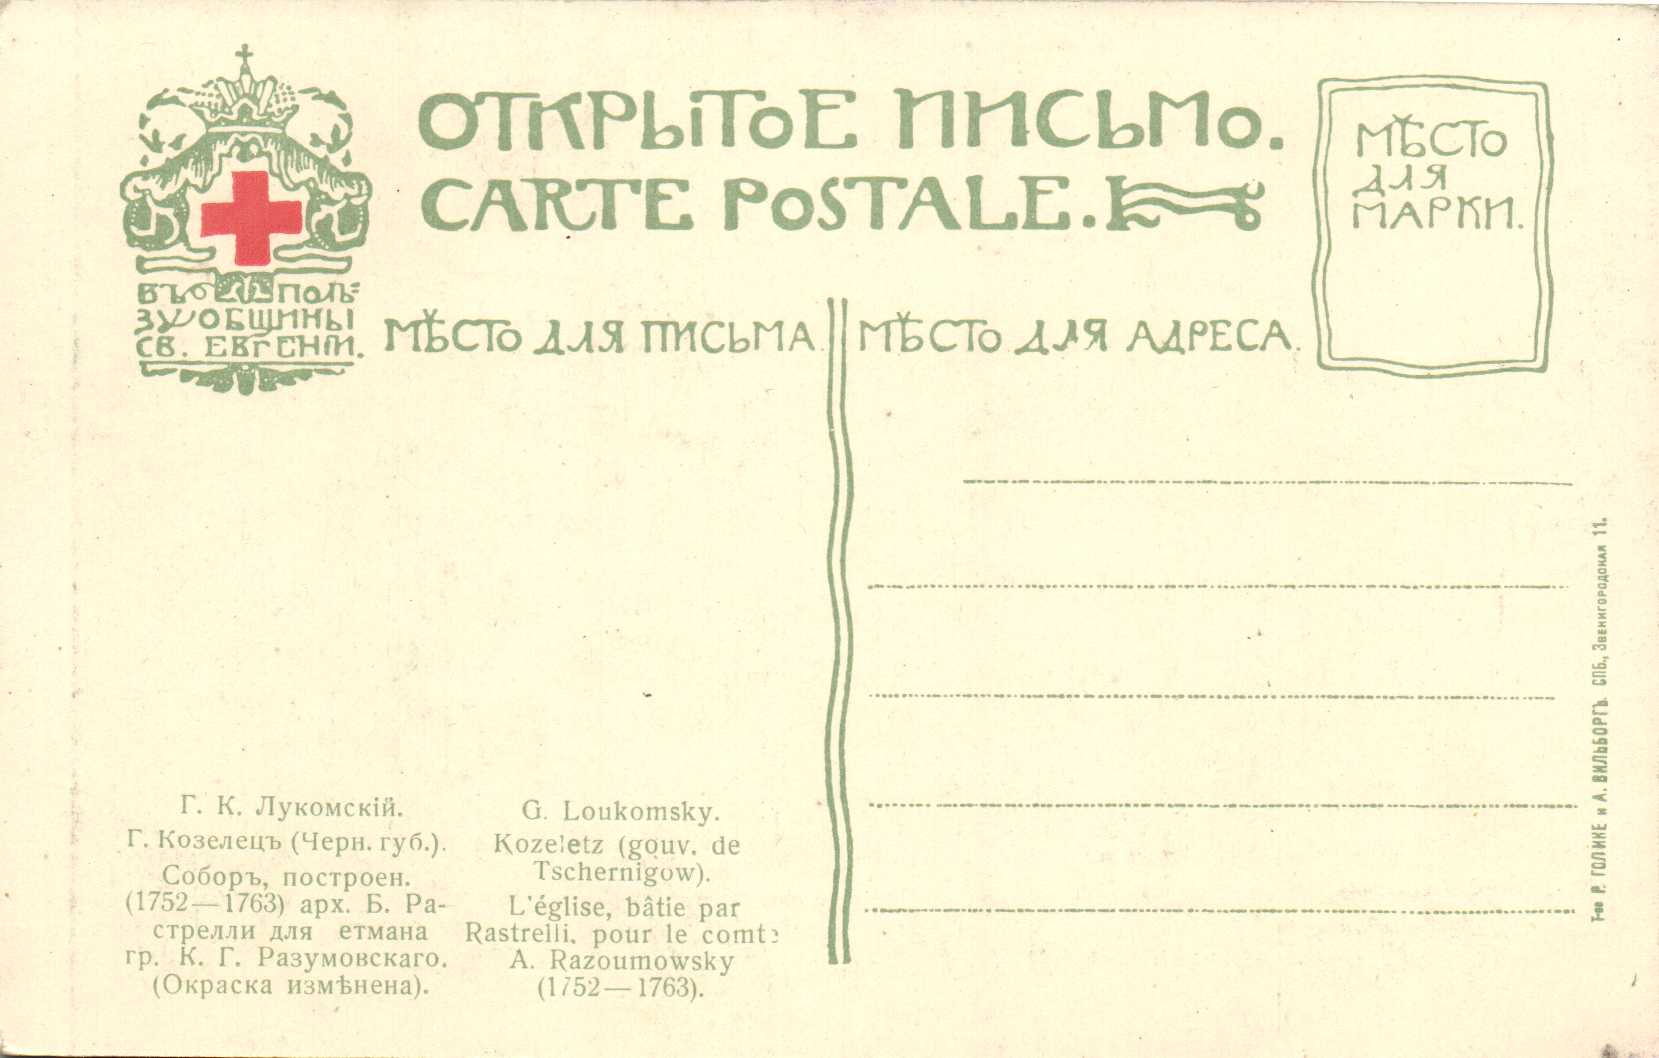 ОТКРЫТОЕ ПИСЬМО.
CARTE POSTALE.
МѢСТО
ДЛЯ
МАРКИ.
ВЪ ПОЛЬ=
ЗУ ОБЩИНЫ
СВ. ЕВГЕНІИ.
МѢСТО ДЛЯ ПИСЬМА.
МѢСТО ДЛЯ АДРЕСА.
Г. К. Лукомскій.
Г. Козелецъ (Черн. губ.).
Соборъ, построен.
(1752—1763) арх. Б. Ра-
стрелли для етмана
гр. К. Г. Разумовскаго.
(Окраска измѣнена).
G. Loukomsky.
Kozeletz (gouv. de
Tschernigow).
L'église, bâtie par
Rastrelli, pour le comte
A. Razoumowsky
(1752—1763).
Т-во Р. ГОЛИКЕ и А. ВИЛЬБОРГЪ. СПБ., Звенигородская 11.